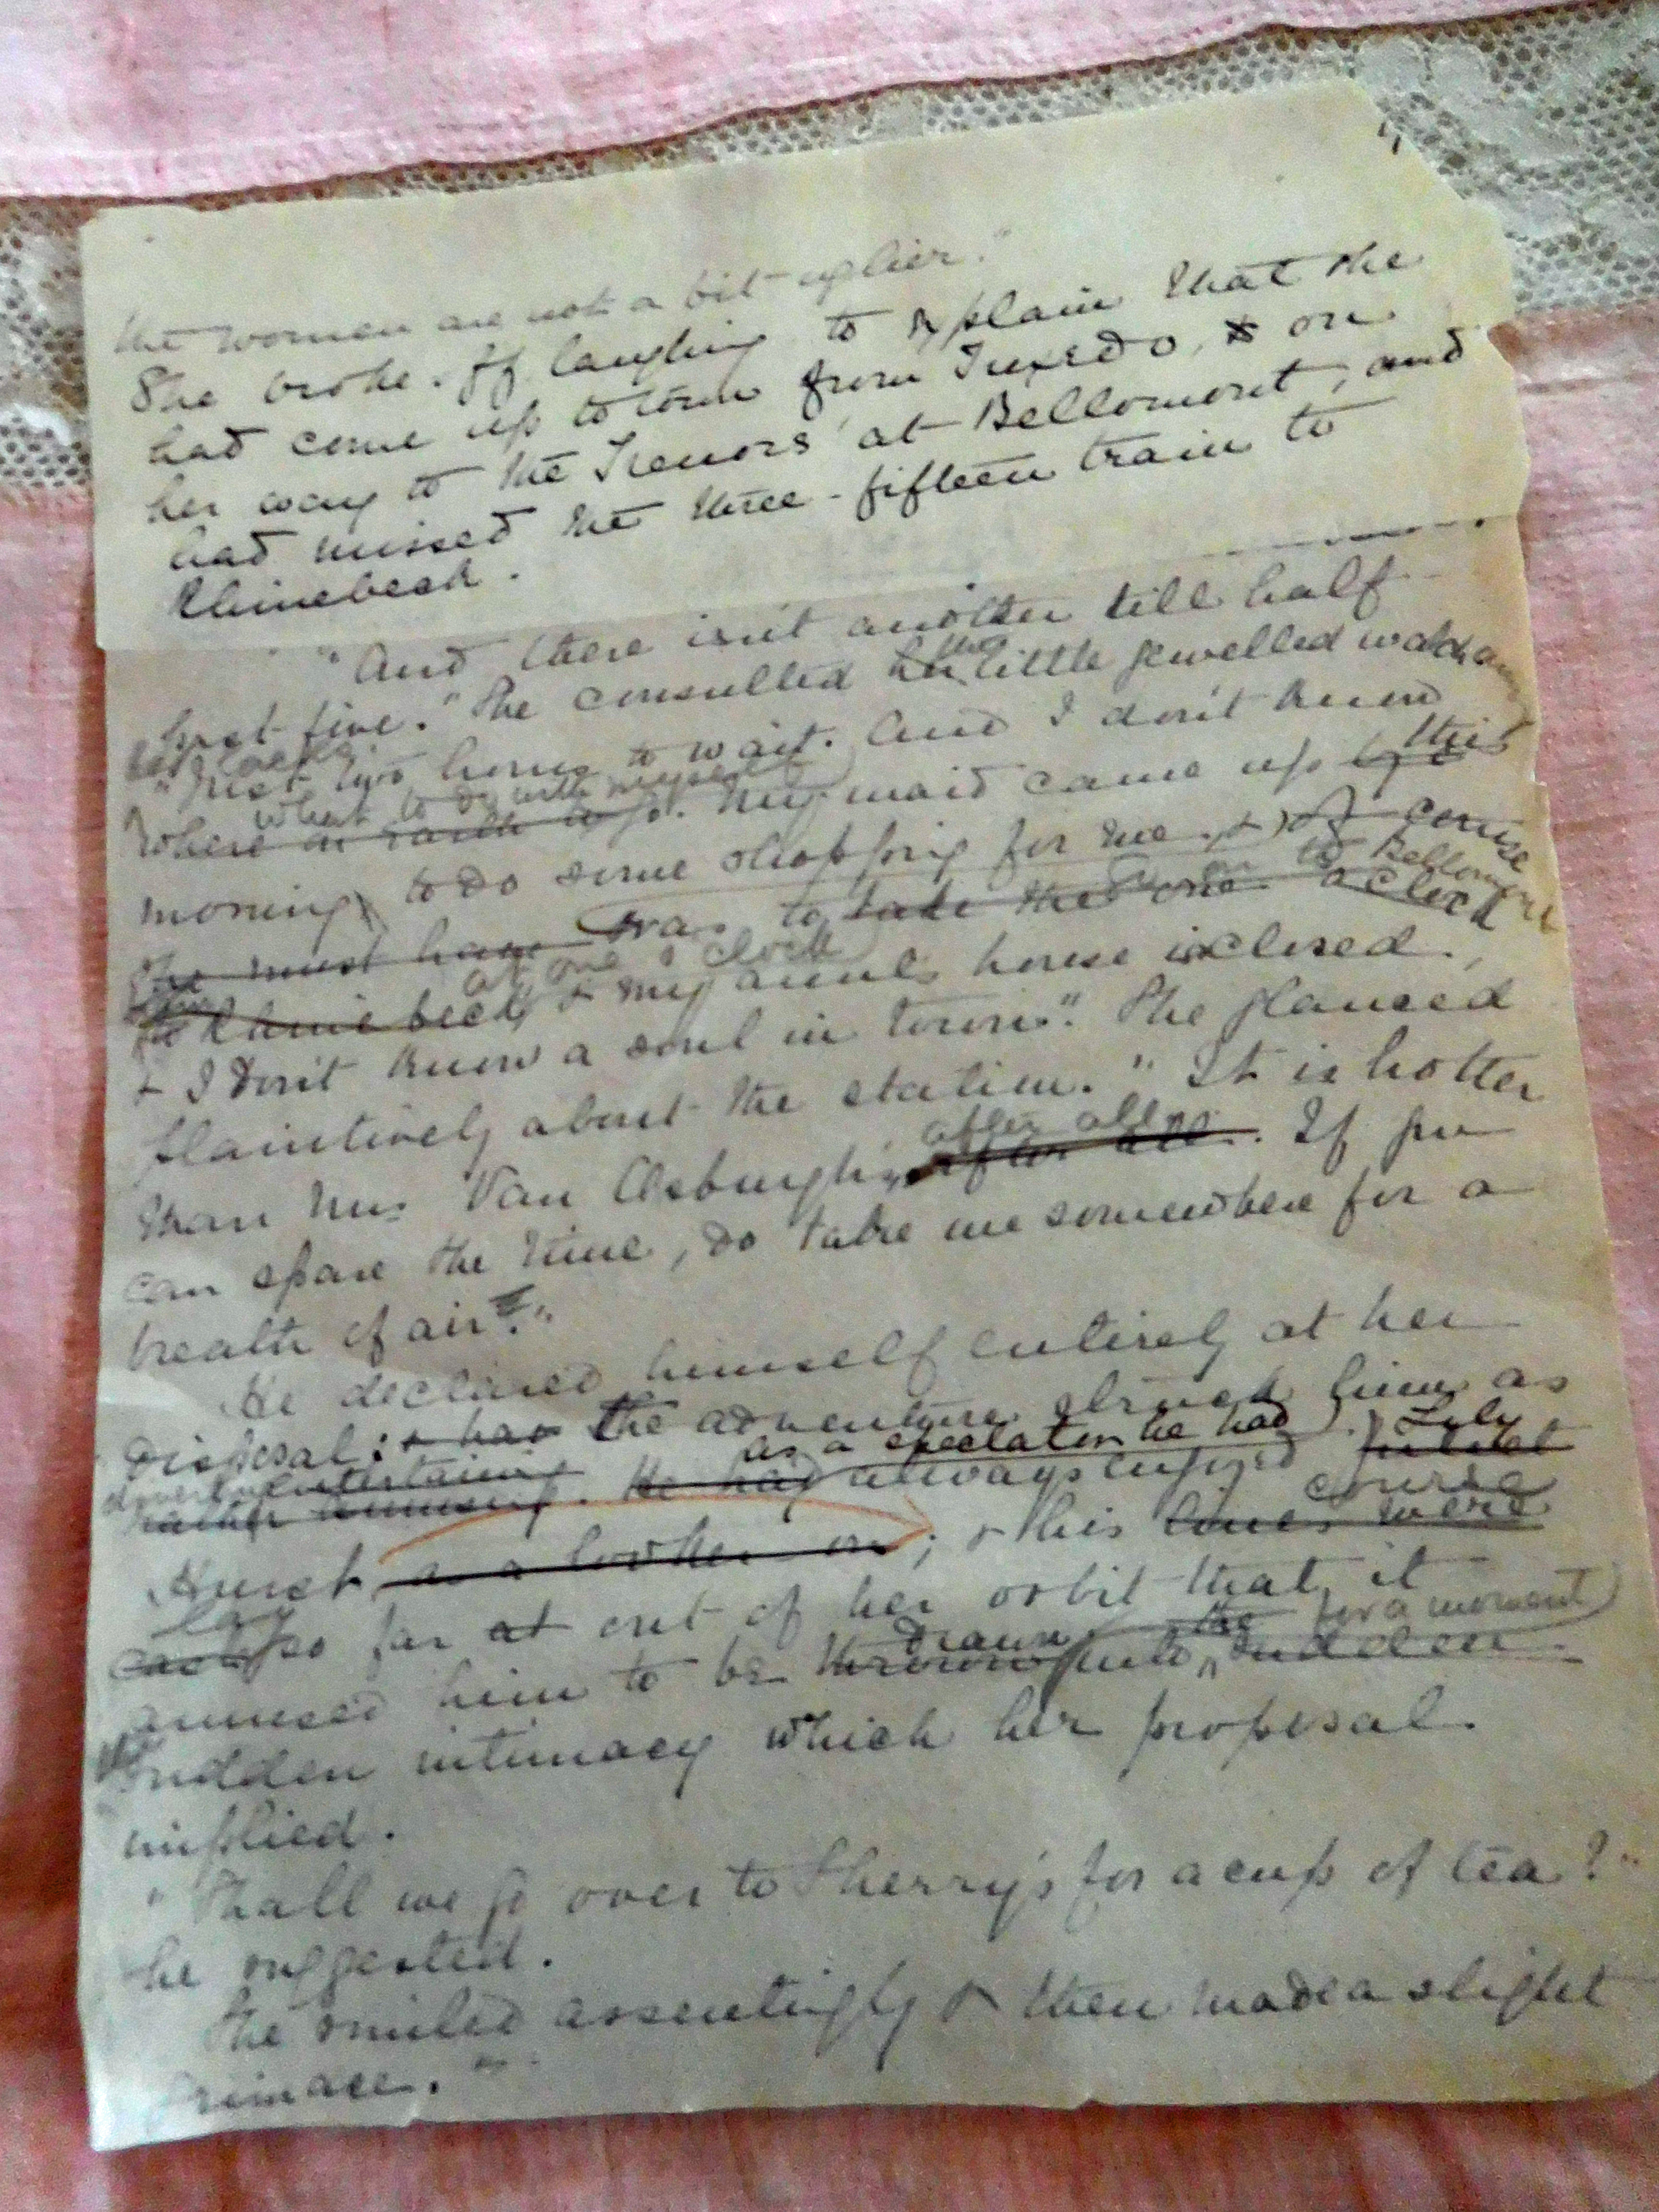 the women are not a bit uglier."
She broke off laughing to explain that she
had come up to town from Tuxedo, & on
her way to the Trenors' at Bellomont, and
had missed the three-fifteen train to
Rhinebeck.
"And there isn't another till half
the
past five." She consulted her little jewelled watch among
her laces.
"Just two hours to wait. And I don't know
what to do with myself
where on earth to go. My maid came up this
morning to do some shopping for me, & of course
to Bellomont
she must have was to take the one o'clock
at one o'clock
to Rhinebeck, & my aunt's house is closed,
& I don't know a soul in town." She glanced
plaintively about the station. "It is hotter
after all
than Mrs Van Osburgh's, after all. If you
can spare the time, do take me somewhere for a
breath of air."
He declared himself entirely at her
disposal: & has the adventure struck him as
as a spectator he had Lily
diverting entertaining
rather amusing. He had always enjoyed
course
Hurst as a looker on; & his lines were
lay
cast so far at out of her orbit that it
drawn the for a moment
amused him to be thrown into sudden
the
sudden intimacy which her proposal
implied.
"Shall we go over to Sherry's for a cup of tea?"
he suggested.
She smiled assentingly & then made a slight
grimace.